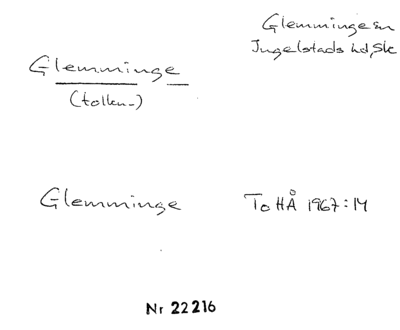 Glemminge sn
Ingelstads hd, Sk
Glemminge
(tolkn.)
Glemminge
To HÅ 1967:14
Nr 22216